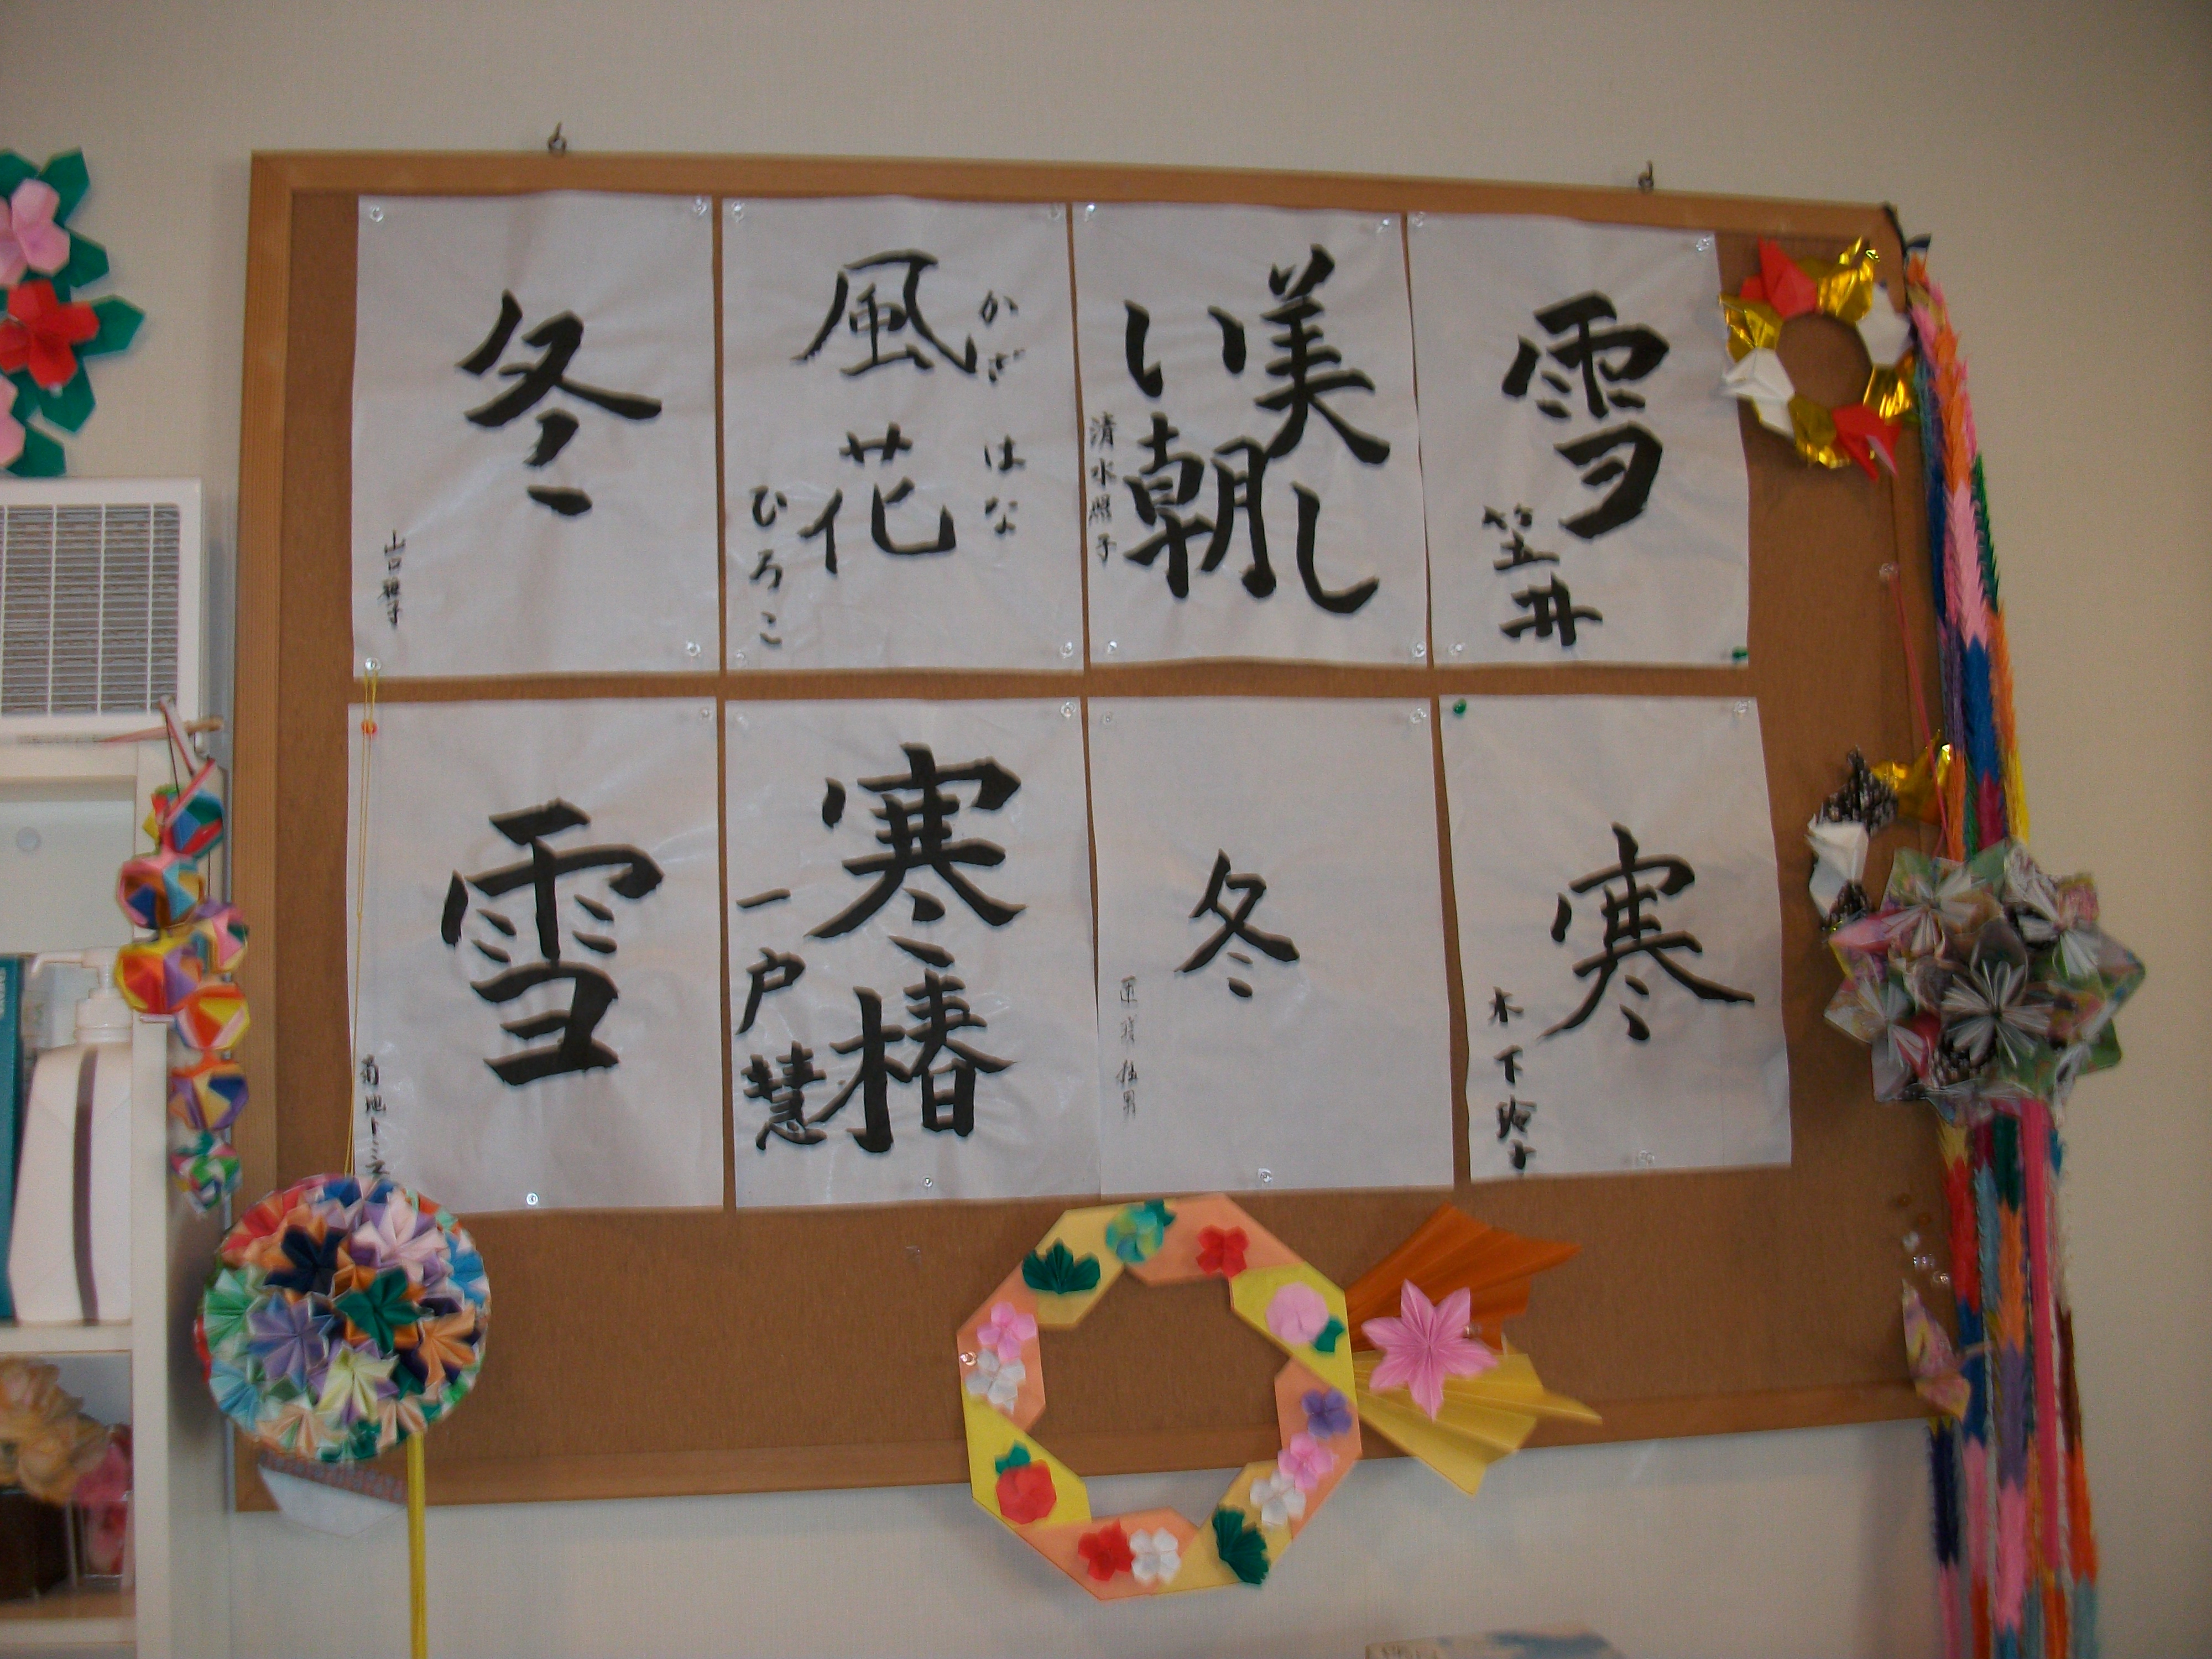 冬
山口雅子
風花
かざはな
ひろこ
美しい朝
清水照子
雪
笠井
雪
寒椿
一戸慧
冬
寒
木下